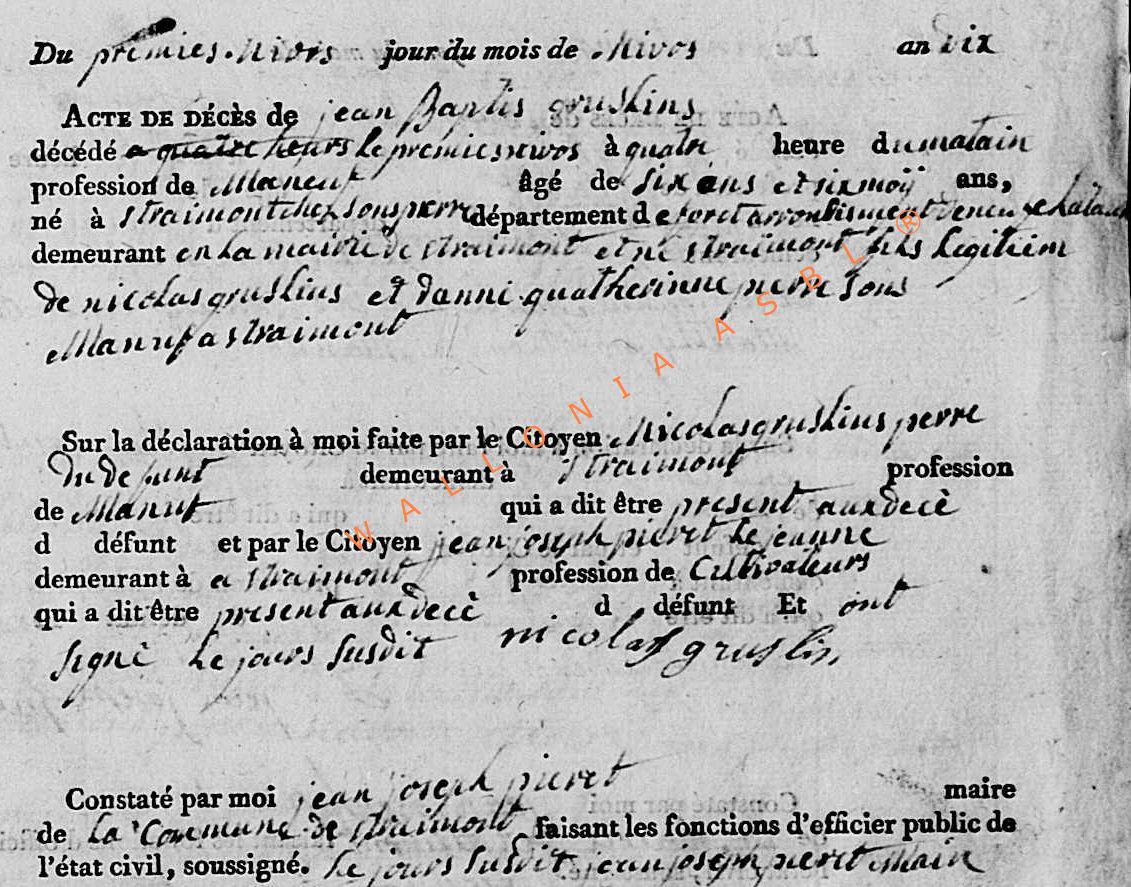 Du premies Nivos jour du mois de Nivos an dix
ACTE DE DÉCÈS de jean Baptis gruslins
décédé a quatre heurs le premies nivos à quatre heure dumatain
profession de Maneuf âgé de six ans et six moij ans,
né à straimont chez sons perre département de foret arrondisment de neuxchataux
demeurant en la mairi de straimont et né straimont fils legitiem
de nicolas gruslins et danni quatherinne perre sons
Manuf a straimont
Sur la déclaration à moi faite par le Citoyen Nicolas gruslins perre
du defunt demeurant à straimont profession
de Manuf qui a dit être present aux decè
d défunt et par le Citoyen jean joseph pieret le jeanne
demeurant à a straimont profession de Cultivateurs
qui a dit être present aux decè d défunt Et ont
signé le jours susdit nicolas gruslin
Constaté par moi jean joseph pieret maire
de la Commune de straimont faisant les fonctions d'efficier public de
l'état civil, soussigné. le jours susdit jean joseph pieret Mair
WALLONIA ASBL ®